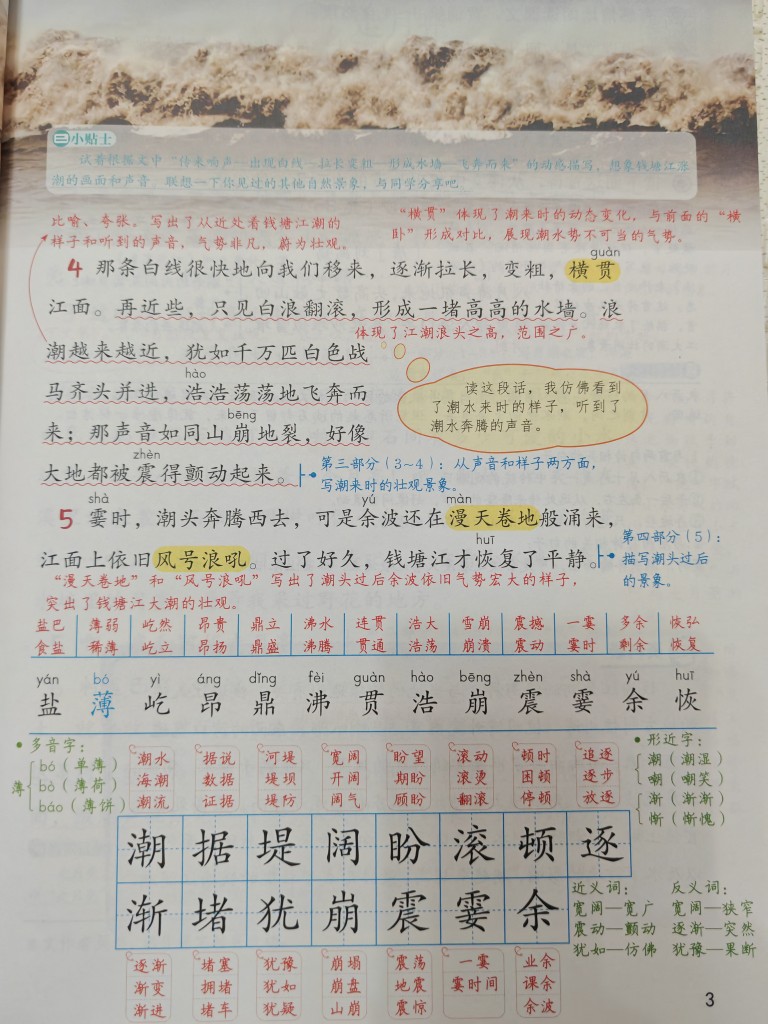 小贴士
试着根据文中“传来响声—出现白线—拉长变粗—形成水墙—飞奔而来”的动态描写，想象钱塘江涨
潮的画面和声音。联想一下你见过的其他自然景象，与同学分享吧。
比喻、夸张，写出了从近处看钱塘江潮的
样子和听到的声音，气势非凡，蔚为壮观。
“横贯”体现了潮来时的动态变化，与前面的“横
卧”形成对比，展现潮水势不可当的气势。
guàn
4 那条白线很快地向我们移来，逐渐拉长，变粗，横贯
江面。再近些，只见白浪翻滚，形成一堵高高的水墙。浪
体现了江潮浪头之高，范围之广。
潮越来越近，犹如千万匹白色战
hào
马齐头并进，浩浩荡荡地飞奔而
bēng
来；那声音如同山崩地裂，好像
zhèn
大地都被震得颤动起来。
读这段话，我仿佛看到
了潮水来时的样子，听到了
潮水奔腾的声音。
第三部分（3~4）：从声音和样子两方面，
写潮来时的壮观景象。
shà yú màn
5 霎时，潮头奔腾西去，可是余波还在漫天卷地般涌来，
huī
江面上依旧风号浪吼。过了好久，钱塘江才恢复了平静。
第四部分（5）：
描写潮头过后
的景象。
“漫天卷地”和“风号浪吼”写出了潮头过后余波依旧气势宏大的样子，
突出了钱塘江大潮的壮观。
盐巴 薄弱 屹然 昂贵 鼎立 沸水 连贯 浩大 雪崩 震撼 一霎 多余 恢弘
食盐 稀薄 屹立 昂扬 鼎盛 沸腾 贯通 浩荡 崩溃 震动 霎时 剩余 恢复
yán bó yì áng dǐng fèi guàn hào bēng zhèn shà yú huī
盐 薄 屹 昂 鼎 沸 贯 浩 崩 震 霎 余 恢
多音字：
薄
bó（单薄）
bò（薄荷）
báo（薄饼）
潮水 据说 河堤 宽阔 盼望 滚动 顿时 追逐
海潮 数据 堤坝 开阔 期盼 滚烫 困顿 逐步
潮流 证据 堤防 阔气 顾盼 翻滚 停顿 放逐
形近字：
潮（潮湿）
嘲（嘲笑）
渐（渐渐）
惭（惭愧）
潮 据 堤 阔 盼 滚 顿 逐
渐 堵 犹 崩 震 霎 余
近义词：
宽阔—宽广
震动—颤动
犹如—仿佛
反义词：
宽阔—狭窄
逐渐—突然
犹豫—果断
逐渐 堵塞 犹豫 崩塌 震荡 一霎 业余
渐变 拥堵 犹如 崩盘 地震 霎时间 课余
渐进 堵车 犹疑 山崩 震惊 余波
3